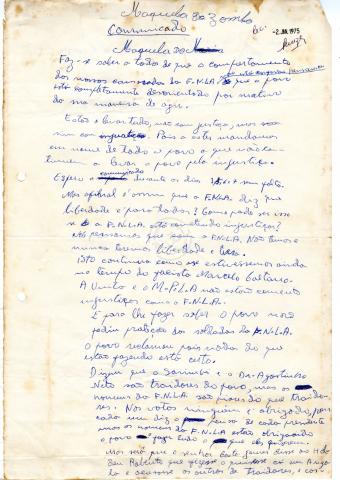 Maquela do Zombo
Comunicado
Rec. -2. JUL 1975
Maquela do
Faz-se saber a todos de que o comportamento
dos nossos camaradas da F.N.L.A. que o povo
está completamente desorientado por motivo
da sua maneira de agir.
Estão a levar tudo, não com justiça, mas
sim com Pois a estes mandamos
em nome de todo o povo a que não
a levar o povo pela injustiça.
Espero o comunicado durante os dias
Mas afinal é assim que a F.N.L.A. diz que
liberdade é para todos? Como pode ser isso
se a F.N.L.A. está cometendo injustiças?
Nós pensamos que com a F.N.L.A. Não temos e
nunca teremos liberdade e
isto continua como se estivessemos ainda
no tempo do fascista Marcelo Caetano.
A Unita e o M.P.L.A não estão cometendo
injustiças como a F.N.L.A.
E para lhe fazer saber O povo não
pediu protecção dos soldados da F.N.L.A.
O povo reclamou pois nada do que
estão fazendo está certo.
Dizem que o Savimbi e o Dr. Agostinho
Neto são traidores do povo, mas os
homens da F.N.L.A. são piores do que traido-
res. Nos votos ninguém é obrigado, pois
cada um diz o de cada presidente
mas os homens da F.N.L.A. estão obrigando
o povo a fazer tudo o que eles querem.
Mas será que o senhor disse ao H do
Sr. Roberto que para
e os outros de Traidores, e cos-